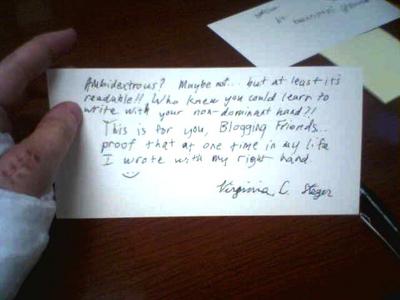 Ambidextrous? Maybe not... but at least it's
readable!! Who knew you could learn to
write with your non-dominant hand?!
This is for you, Blogging Friends...
proof that at one time in my life
I wrote with my right hand.
Virginia C. Steger